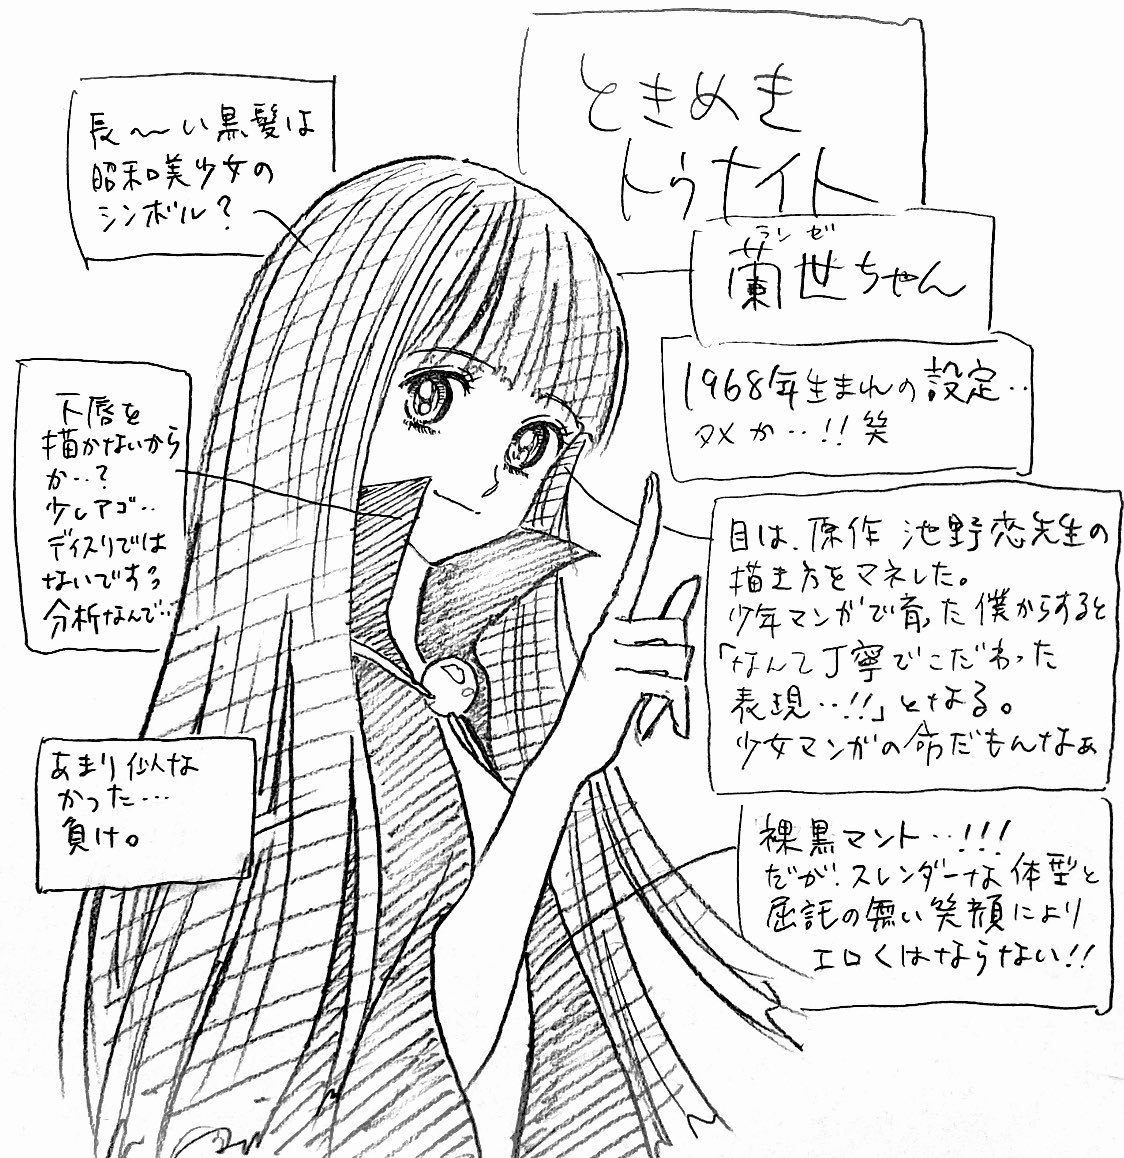 ときめき
トゥナイト
ランゼ
蘭世ちゃん
1968年生まれの設定‥
タメか‥!!笑
長〜い黒髪は
昭和美少女の
シンボル?
下唇を
描かないから
か‥?
少しアゴ‥
ディスりでは
ないですっ
分析なんで‥
目は、原作 池野恋先生の
描き方をマネした。
少年マンガで育った僕からすると
「なんて丁寧でこだわった
表現‥!!」となる。
少女マンガの命だもんなぁ
あまり似な
かった…
負け。
裸黒マント‥!!!
だが、スレンダーな体型と
屈託の無い笑顔により
エロくはならない!!